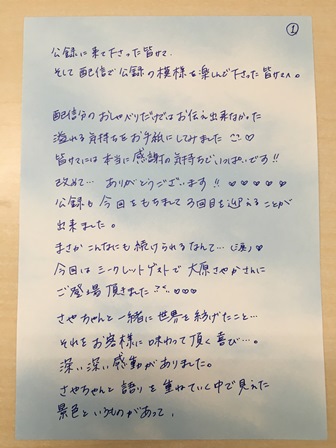 ①
公録に来て下さった皆サマ
そして配信で公録の模様を楽しんで下さった皆サマへ。
配信分のおしゃべりだけではお伝え出来なかった
溢れる気持ちをお手紙にしてみました♡
皆サマには本当に感謝の気持ちでいっぱいです!!
改めて… ありがとうございます!! ♡♡♡♡♡
公録も今回をもちまして3回目を迎えることが
出来ました。
まさかこんなにも続けられるなんて…(涙)♡
今回はシークレットゲストで大原さやかさんに
ご登場頂きました♡♡♡
さやちゃんと一緒に世界を紡げたこと…
それをお客様に味わって頂く喜び…。
深い深い感動がありました。
さやちゃんと語りを重ねていく中で見えた
景色というものがあって、